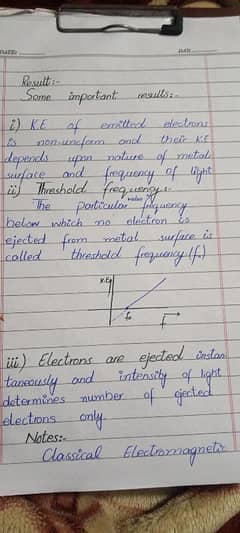 DATE:
DAY:
Result:-
Some important results:-
i) K.E of emitted electrons
is non-uniform and their K.E
depends upon nature of metal
surface and frequency of light
ii) Threshold frequency:-
The particular value of frequency
below which no electron is
ejected from metal surface is
called threshold frequency (f₀)
K.E
f₀
f
iii) Electrons are ejected instan
taneously and intensity of light
determines number of ejected
electrons only.
Notes:-
Classical Electromagnetic